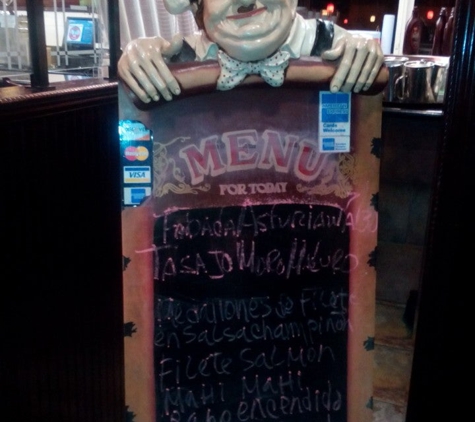 MENU
FOR TODAY
Fabada Asturiana
TASAJO Moro Maduro
Medallones de Filete
en Salsa champiñon
Filete Salmon
Mahi Mahi
Rabo encendido
MasterCard
VISA
Cards
Welcome